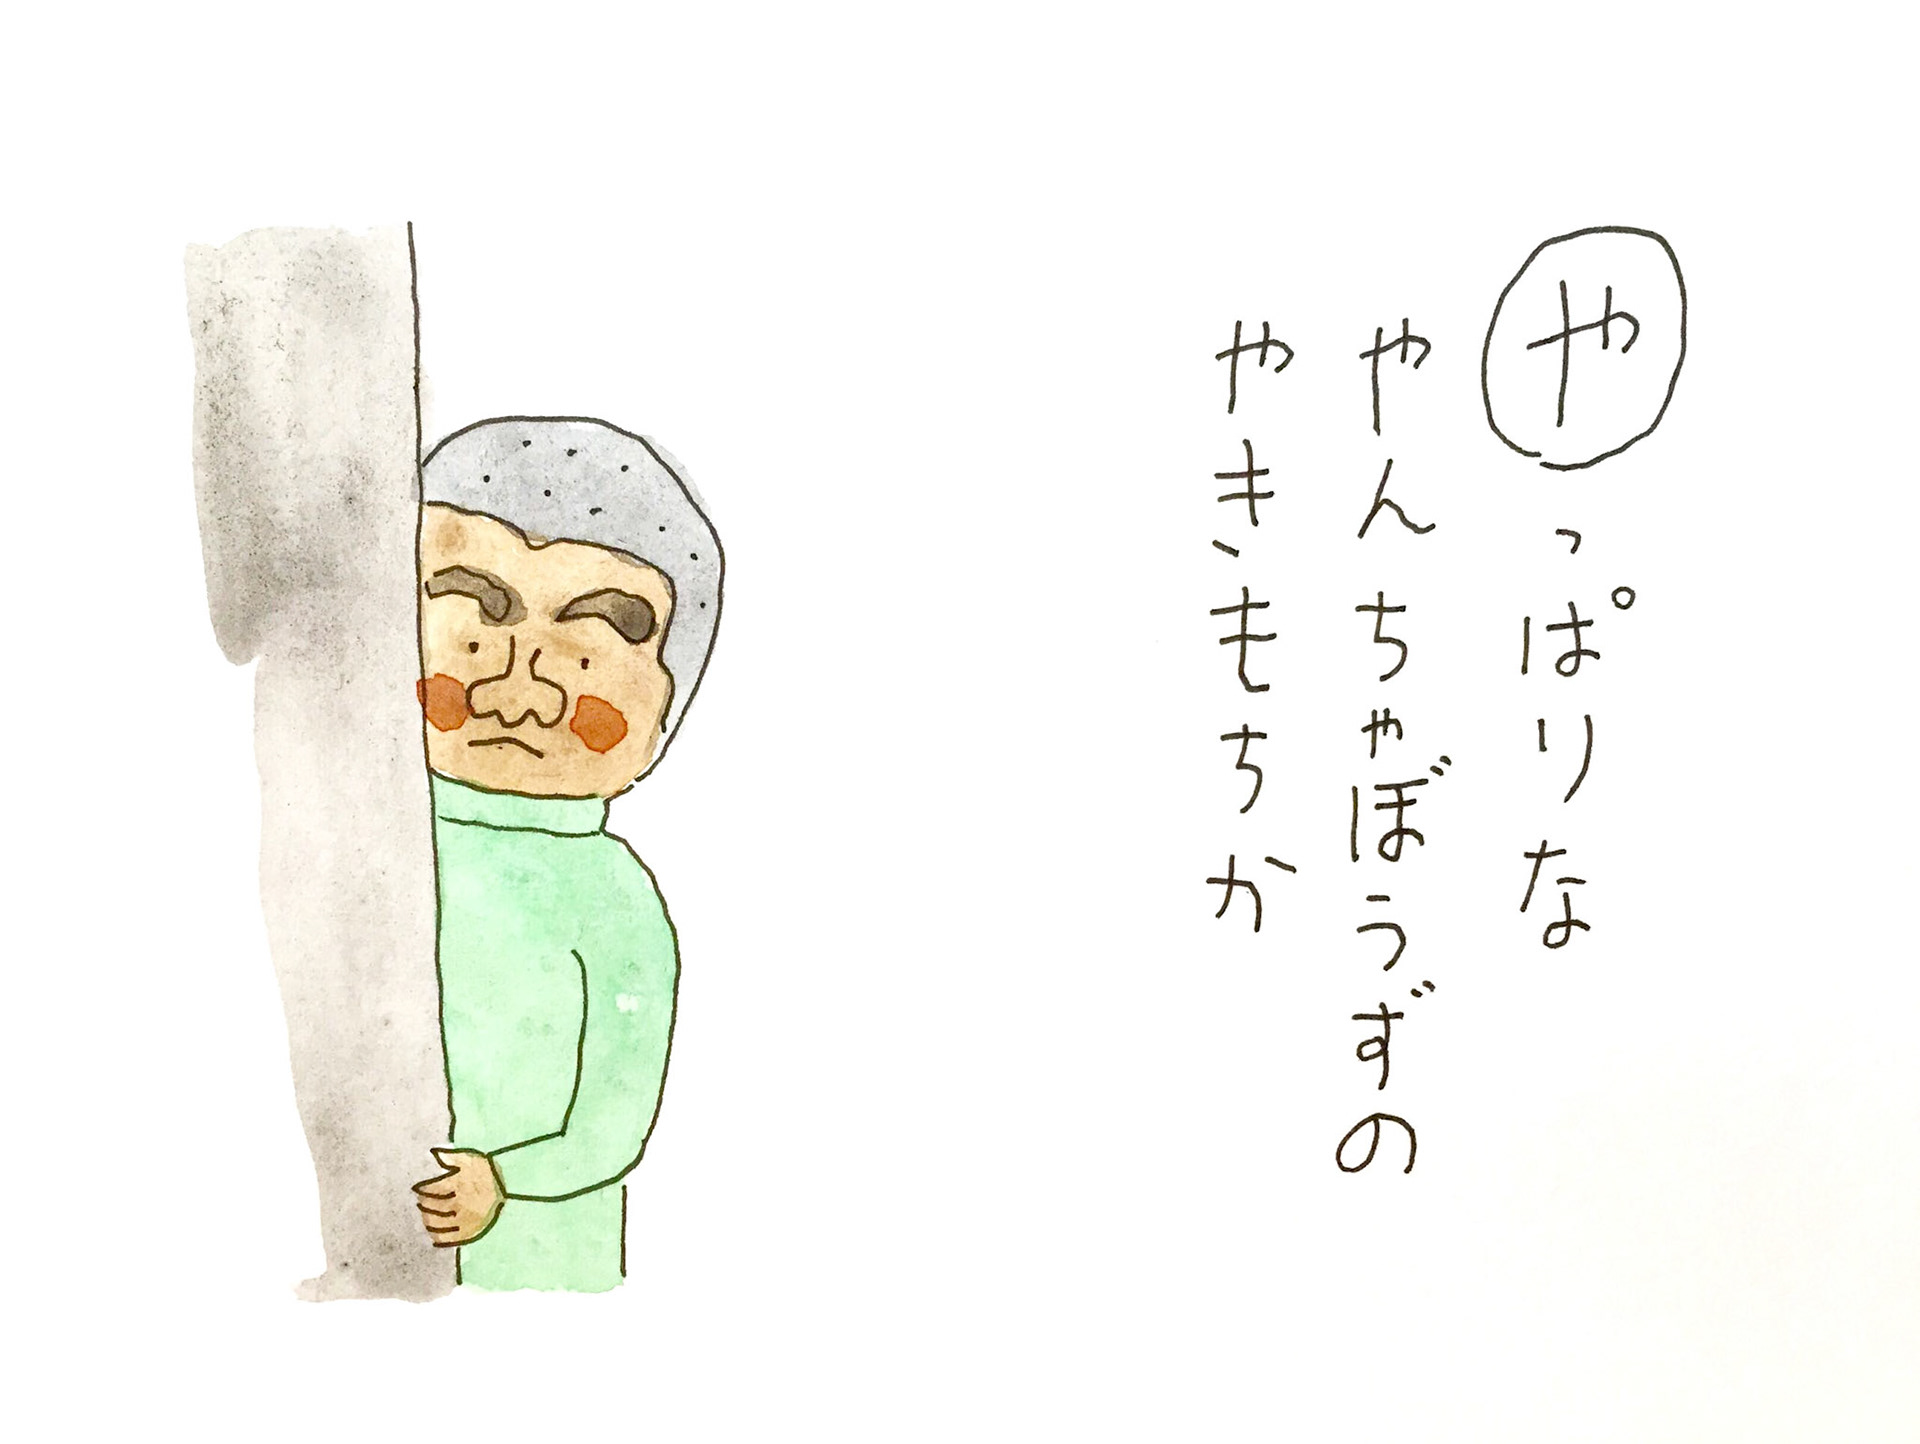 やっぱりな
やんちゃぼうずの
やきもちか